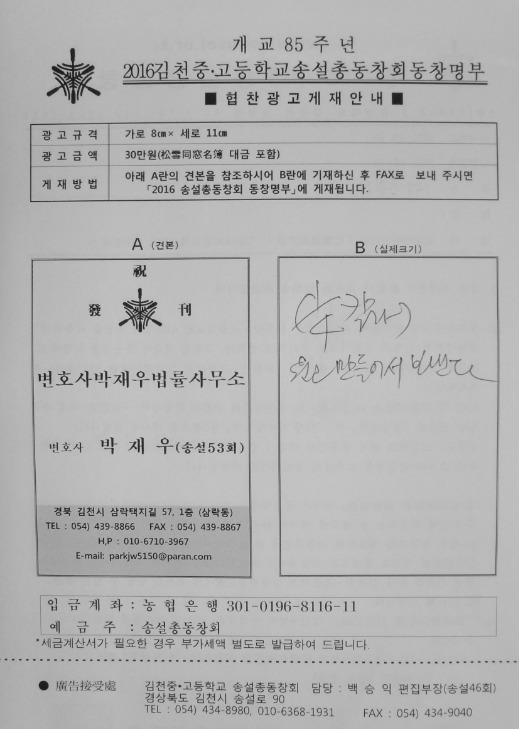 개교 85주년
2016김천중·고등학교송설총동창회동창명부
■ 협찬광고게재안내 ■
광고규격 가로 8㎝× 세로 11㎝
광고금액 30만원(松雪同窓名簿 대금 포함)
게재방법 아래 A란의 견본을 참조하시어 B란에 기재하신 후 FAX로 보내 주시면
「2016 송설총동창회 동창명부」에 게재됩니다.
A (견본)
祝
發 刊
변호사박재우법률사무소
변호사 박재우(송설53회)
경북 김천시 삼락택지길 57, 1층 (삼락동)
TEL : 054) 439-8866 FAX : 054) 439-8867
H,P : 010-6710-3967
E-mail: parkjw5150@paran.com
B (실제크기)
만들어서 보낸다
입금계좌 : 농협은행 301-0196-8116-11
예금주 : 송설총동창회
*세금계산서가 필요한 경우 부가세액 별도로 발급하여 드립니다.
● 廣告接受處 김천중·고등학교 송설총동창회 담당 : 백승익 편집부장(송설46회)
경상북도 김천시 송설로 90
TEL : 054) 434-8980, 010-6368-1931 FAX : 054) 434-9040